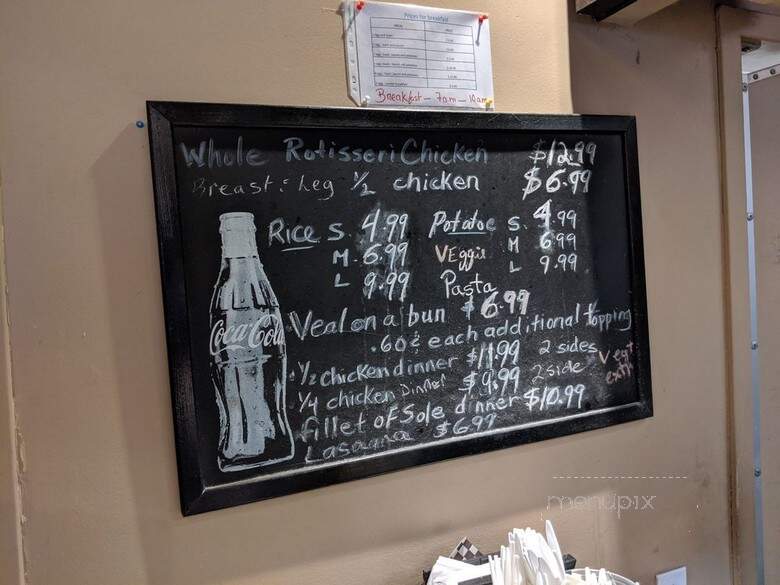 Prices for breakfast
Breakfast - 7am - 10am
Whole Rotisseri Chicken $12.99
Breast: Leg 1/2 chicken $6.99
Rice S. 4.99 Potatoe S. 4.99
M. 6.99 VEggie M 6.99
L 9.99 Pasta L 9.99
Veal on a bun $6.99
.60¢ each additional topping
Coca-Cola
.1/2 chicken dinner $11.99 2 sides
1/4 chicken Dinner $9.99 2 side
Vegt extra
fillet of Sole dinner $10.99
Lasagna $6.99
menupix